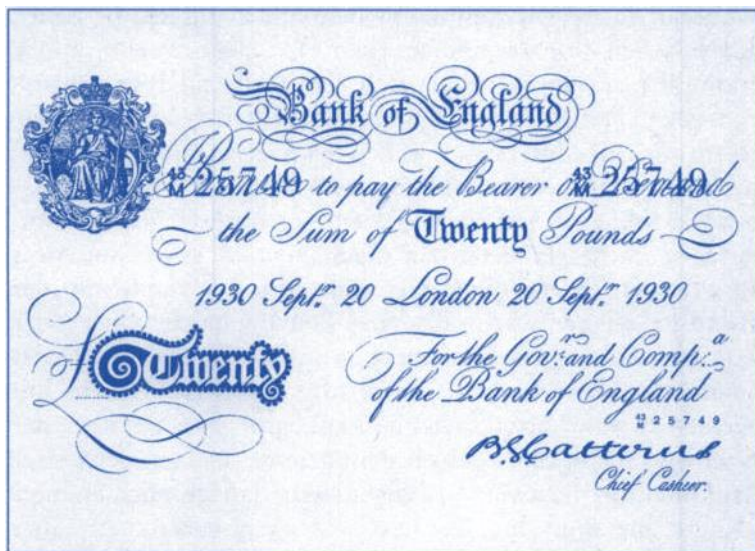 Bank of England
43 M 25749 43 M 25749
Promise to pay the Bearer on Demand
the Sum of Twenty Pounds
1930 Septr. 20 London 20 Septr. 1930
£ Twenty
For the Govr. and Compa.
of the Bank of England
43 M 25749
B.G. Catterns
Chief Cashier.